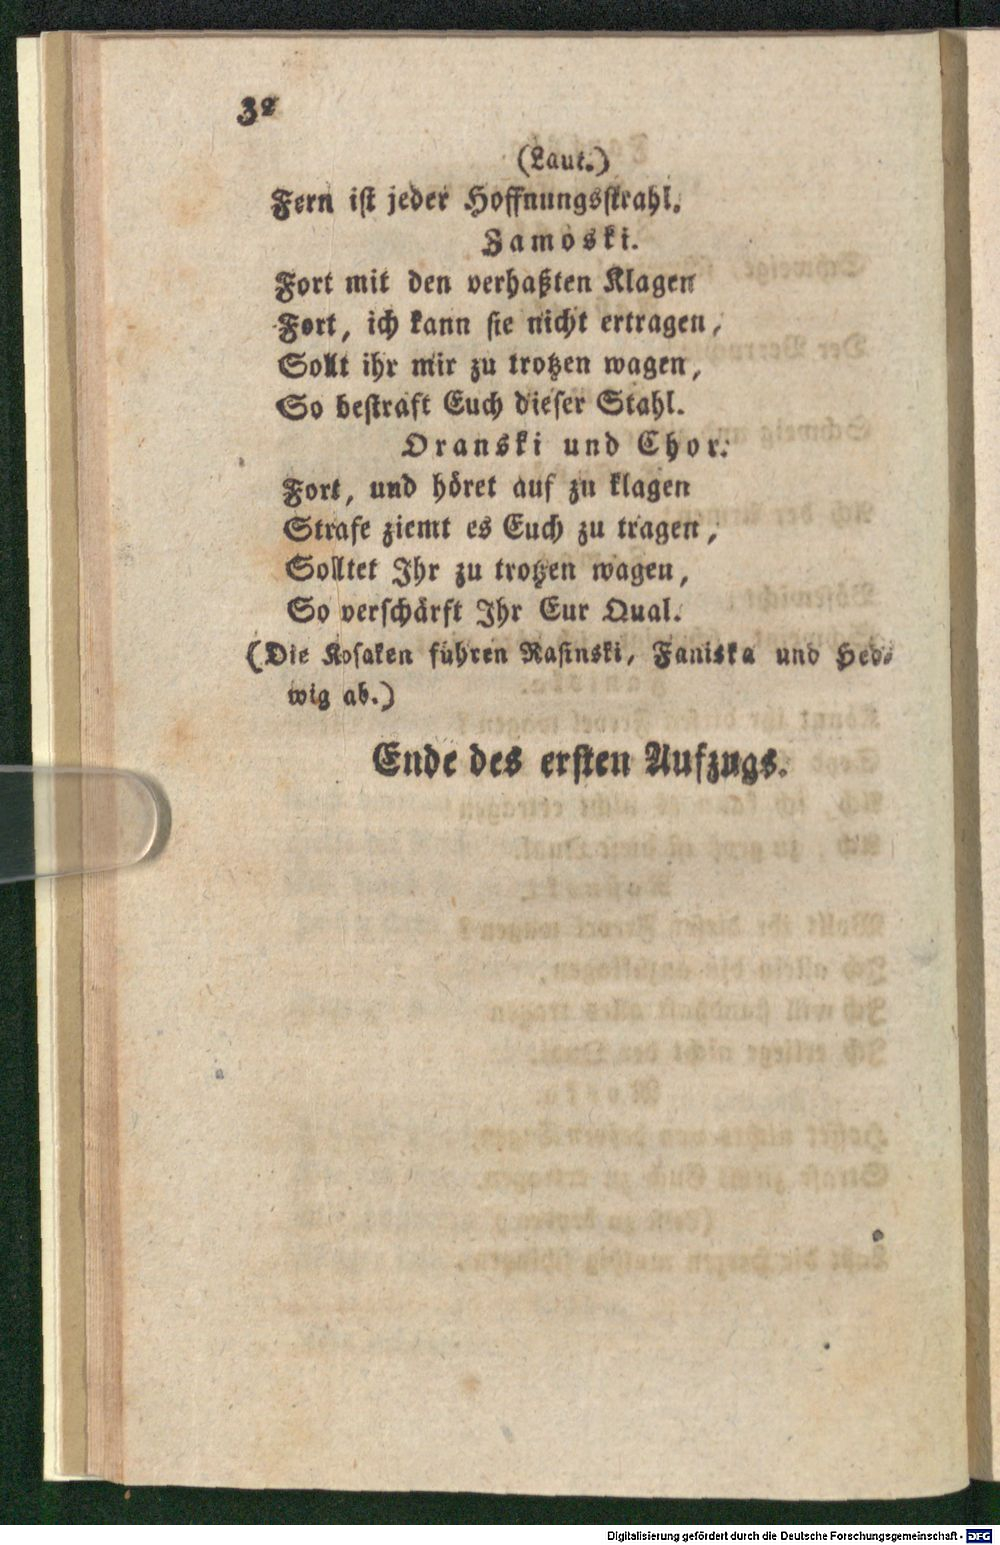 32
(Laut.)
Fern ist jeder Hoffnungsstrahl.
Zamoski.
Fort mit den verhaßten Klagen
Fort, ich kann sie nicht ertragen,
Sollt ihr mir zu trotzen wagen,
So bestraft Euch dieser Stahl.
Oranski und Chor.
Fort, und höret auf zu klagen
Strafe ziemt es Euch zu tragen,
Solltet Ihr zu trotzen wagen,
So verschärft Ihr Eur Qual.
(Die Kosaken führen Rasinski, Faniska und Hed-
wig ab.)
Ende des ersten Aufzugs.
Digitalisierung gefördert durch die Deutsche Forschungsgemeinschaft - DFG